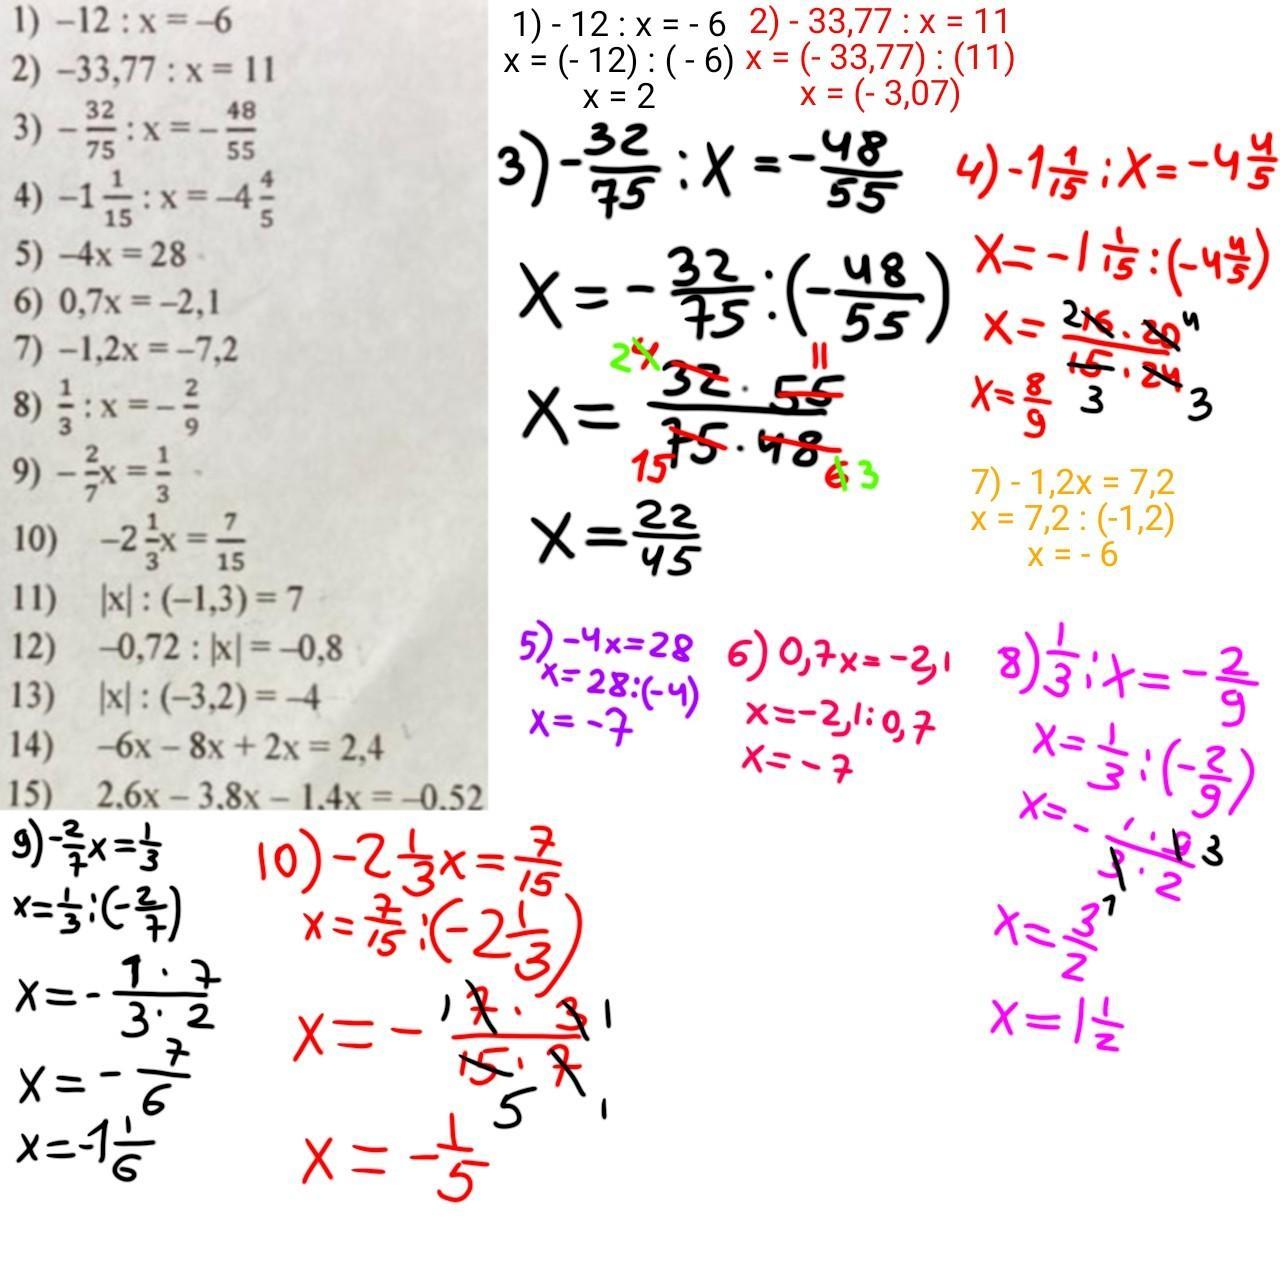 1) –12 : x = –6
2) –33,77 : x = 11
3) –32/75 : x = –48/55
4) –1 1/15 : x = –4 4/5
5) –4x = 28
6) 0,7x = –2,1
7) –1,2x = –7,2
8) 1/3 : x = –2/9
9) –2/7x = 1/3
10) –2 1/3x = 7/15
11) |x| : (–1,3) = 7
12) –0,72 : |x| = –0,8
13) |x| : (–3,2) = –4
14) –6x – 8x + 2x = 2,4
15) 2,6x – 3,8x – 1,4x = –0,52
1) - 12 : x = - 6
x = (- 12) : ( - 6)
x = 2
2) - 33,77 : x = 11
x = (- 33,77) : (11)
x = (- 3,07)
3) -32/75 : x = -48/55
x = -32/75 : (-48/55)
2 4 11
x = 32 · 55 / 75 · 48
15 6 3
x = 22/45
4) -1 1/15 : x = -4 4/5
x = -1 1/15 : (-4 4/5)
2 4
x = 16 · 20 / 15 · 24
3 3
x = 8/9
7) - 1,2x = 7,2
x = 7,2 : (-1,2)
x = - 6
5) -4x = 28
x = 28 : (-4)
x = -7
6) 0,7x = -2,1
x = -2,1 : 0,7
x = - 7
8) 1/3 : x = -2/9
x = 1/3 : (-2/9)
x = - 1 · 9 / 3 · 2
3
1
x = 3/2
x = 1 1/2
9) -2/7x = 1/3
x = 1/3 : (-2/7)
x = - 1 · 7 / 3 · 2
x = - 7/6
x = -1 1/6
10) -2 1/3x = 7/15
x = 7/15 : (-2 1/3)
1 1
x = - 7 · 3 / 15 · 7
5 1
x = -1/5